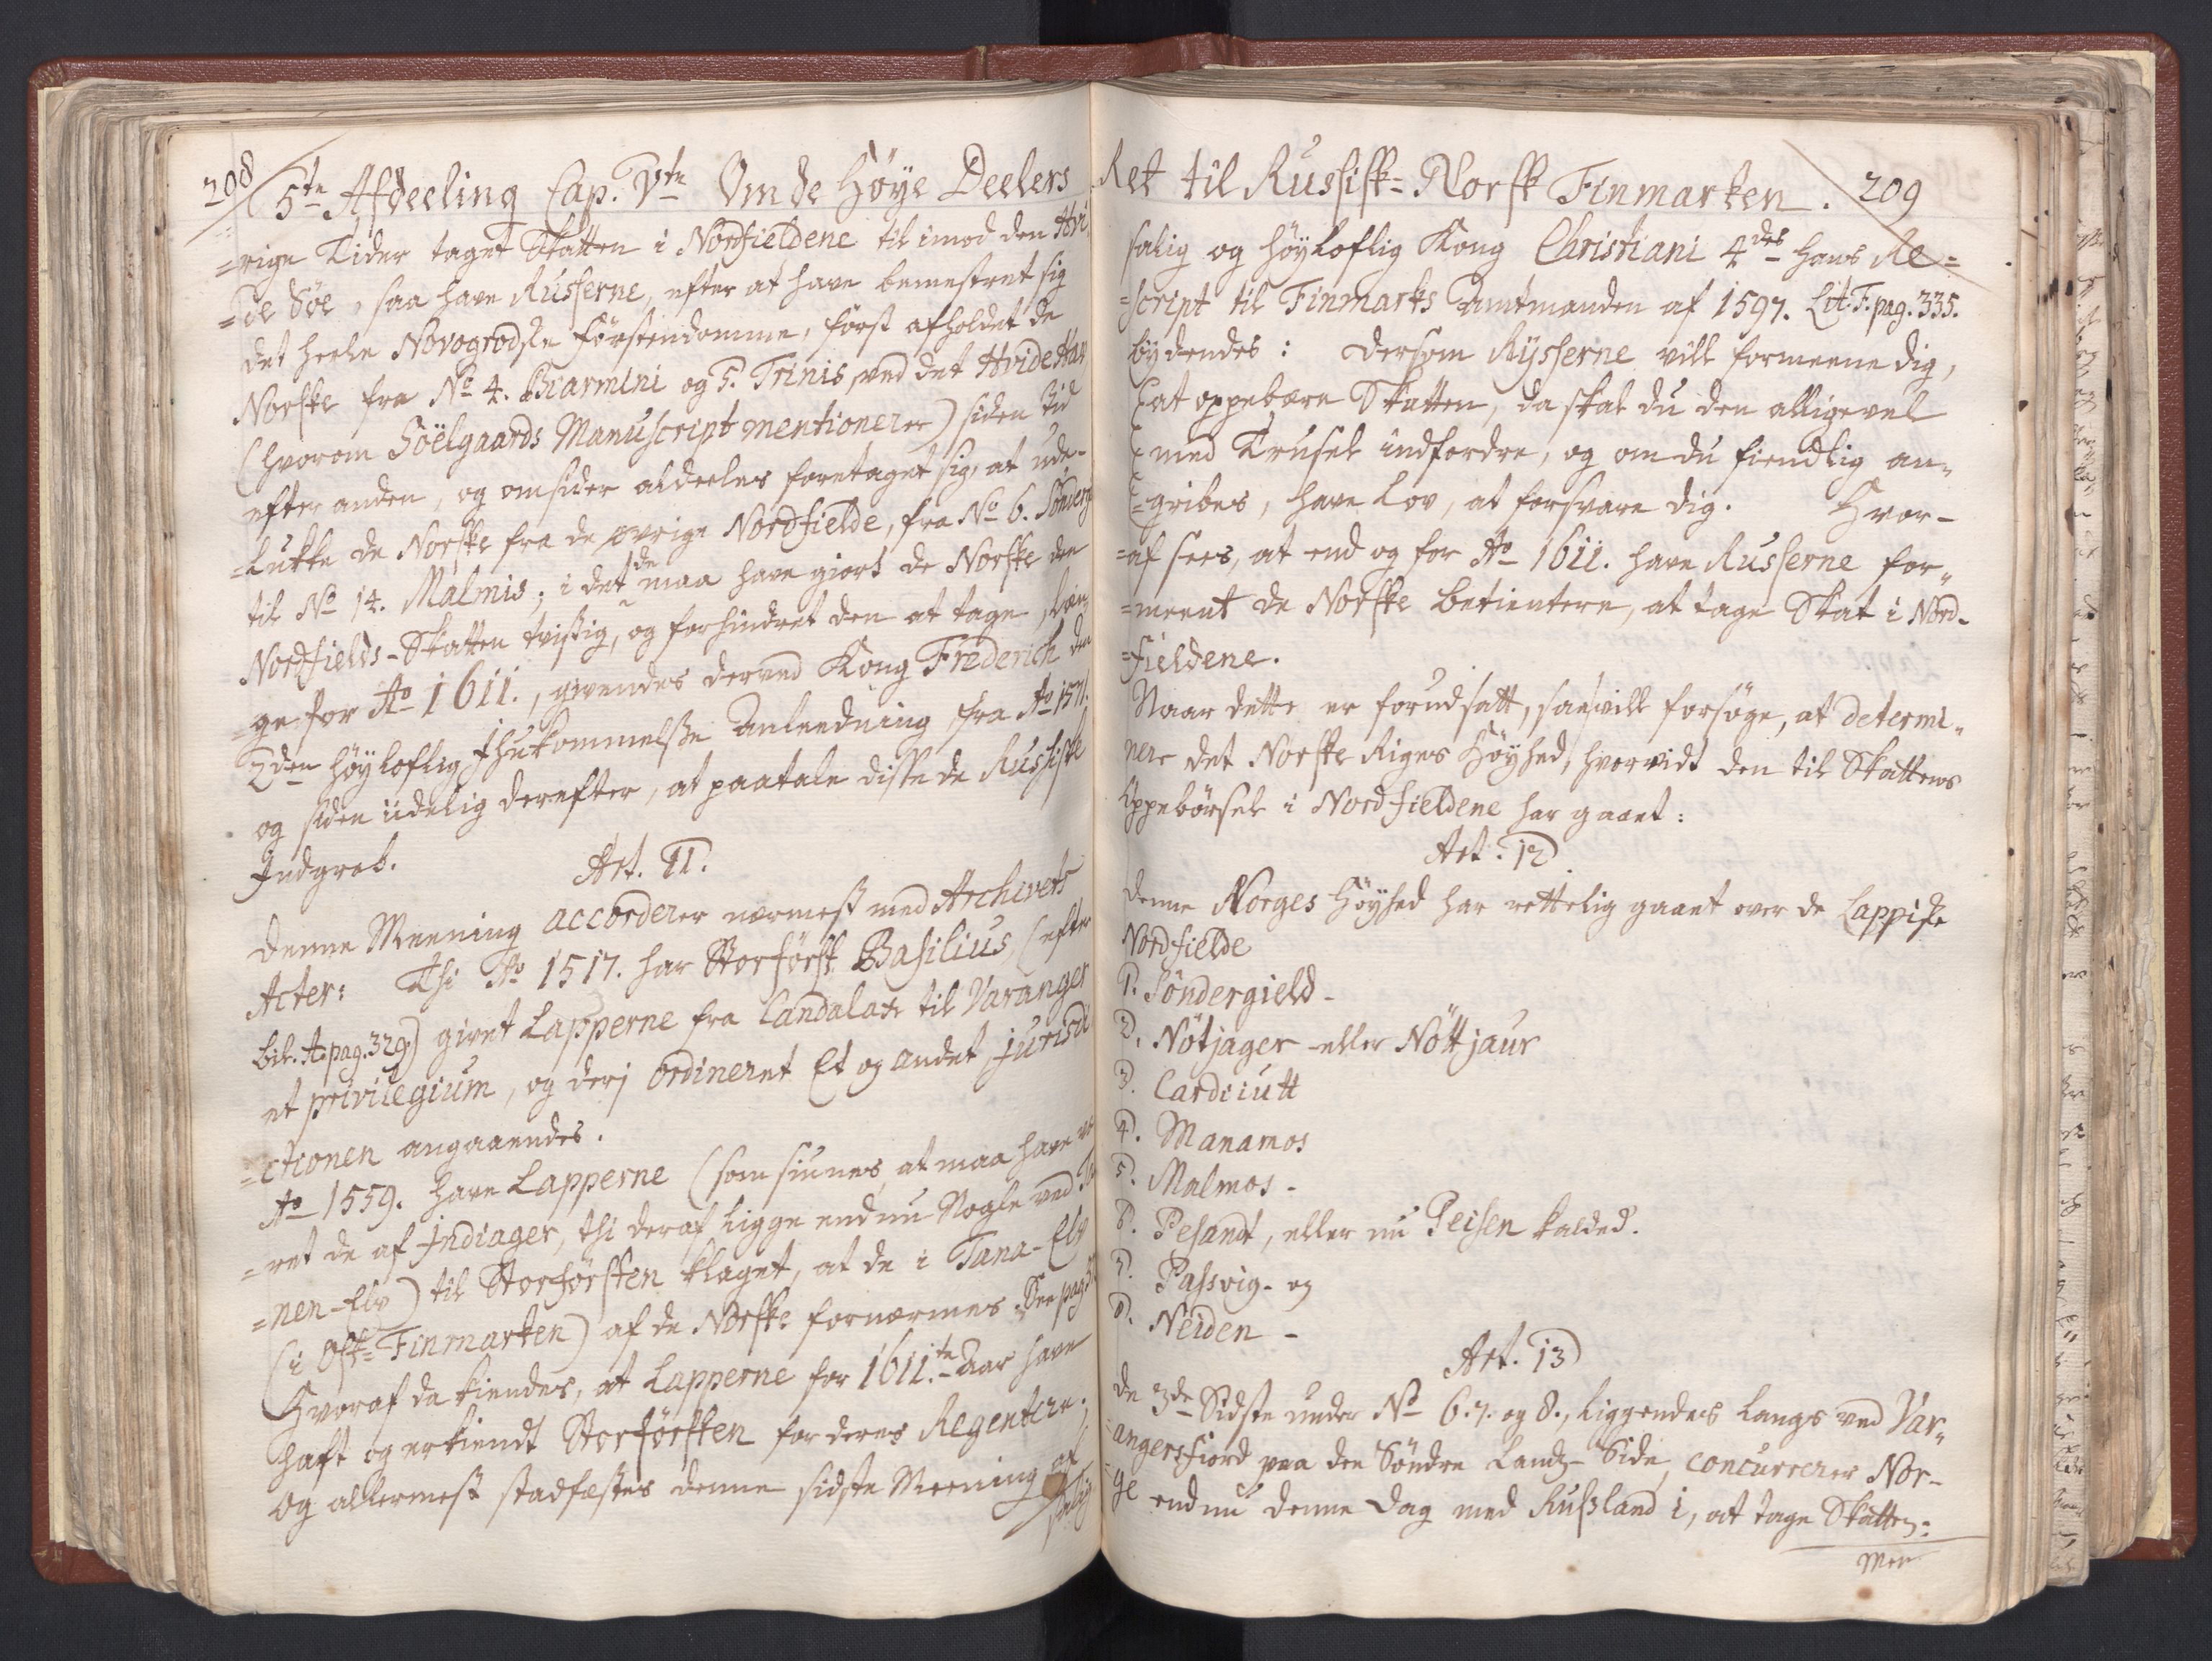 208
5te Afdeeling Cap. Vte Om de Høÿe Deelers
=rige Tider taget Skatten i Nordfieldene til imod den Hvi-
=de Söe, saa have Russerne, efter at have bemestret sig
det heele Novogrodske Förstendomme, först afholdet de
Norske fra No 4. Biarmini og 5. Trinis, ved det Hvide Hav
(hvorom Söelgaards Manuscript mentionerer) siden tid
efter anden, og omsider aldeeles foretaget sig, at ude-
=lukke de Norske fra de øvrige Nordfielde, fra No 6. Sönderg
til No 14. Malmis; i det de maa have giort de Norske den
Nordfields-Skatten tvistig, og forhindret den at tage, læn-
=ge for Ao 1611., givendes derved Kong Frederich den
2den höÿloflig Ihukommelse Anleedning fra Ao 1571.
og siden üdelig derefter, at paatale disse de Russiske
Indgreb.
Art. 11.
Denne Meening accorderer nærmest med Archivets
Acter: Thi Ao 1517. har Storförst Basilius, (efter
Lit. A. pag. 329.) givet Lapperne fra Candalax til Varanger
et privilegium, og derj ordineret Et og andet Jurisdi
=ctionen angaaendes.
Ao 1559. have Lapperne (som siunes, at maa have væ
=ret de af Indiager, thi deraf ligge endnu Nogle ved Ta
=nen-Elv) til Storförsten klaget, at de i Tana-Elv
(i Ost-Finmarken) af de Norske fornærmes. See pag.
Hvoraf da kiendes, at Lapperne for 1611.te Aar have
haft og erkiendt Storförsten for deres Regentere;
Og allermest stadfæstes denne sidste Meening af
salig
Ret til Russisk-Norsk Finmarken. 209
salig og höÿloflig Kong Christiani 4des hans Re=
=script til Finmarks Amtmanden af 1597. Lit. F. pag. 335.
bÿdendes: Dersom Rÿsserne vill formeene dig,
at oppebære Skatten, da skal du den alligevel
med Trusel indfordre, og om du fiendtlig an-
=gribes, have lov, at forsvare dig. Hvor-
=af sees, at end og for Ao 1611. have Russerne for-
=meent de Norske betientere, at tage Skat i Nord-
=fieldene.
Naar dette er forudsatt, saa vill forsøge, at determi-
nere det Norske Riges Höÿhed, hvorvidt den til Skattens
Oppebörsel i Nordfieldene har gaaet:
Art. 12.
Denne Norges Höÿhed har rettelig gaaet over de Lappiske
Nordfielde
1. Söndergield-
2. Nötjager eller Nöttjaur
3. Cardiiutt
4. Manamos
5. Malmos-
6. Pesandt, eller nu Peisen kalded.
7. Passvig- og
8. Neiden-
Art. 13
De 3de Sidste under No 6. 7. og 8., liggendes langs ved Var-
=angersfiord paa den Söndre Landz-Side, concurrerer Nor-
ge endnu denne Dag med Rusland i, at tage Skatten:
Men